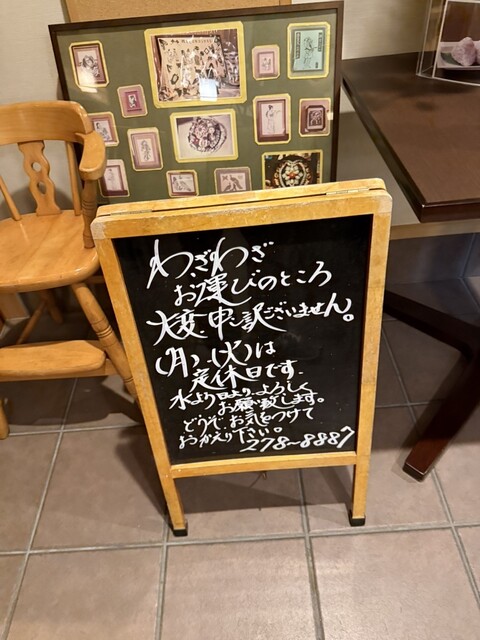 わざわざ
お運びのところ
大変、申し訳ございません。
(月)、(火)は
定休日です。
水よう日より、よろしく
お願い致します。
どうぞ、お気をつけて
おかえり下さい。
278-8887